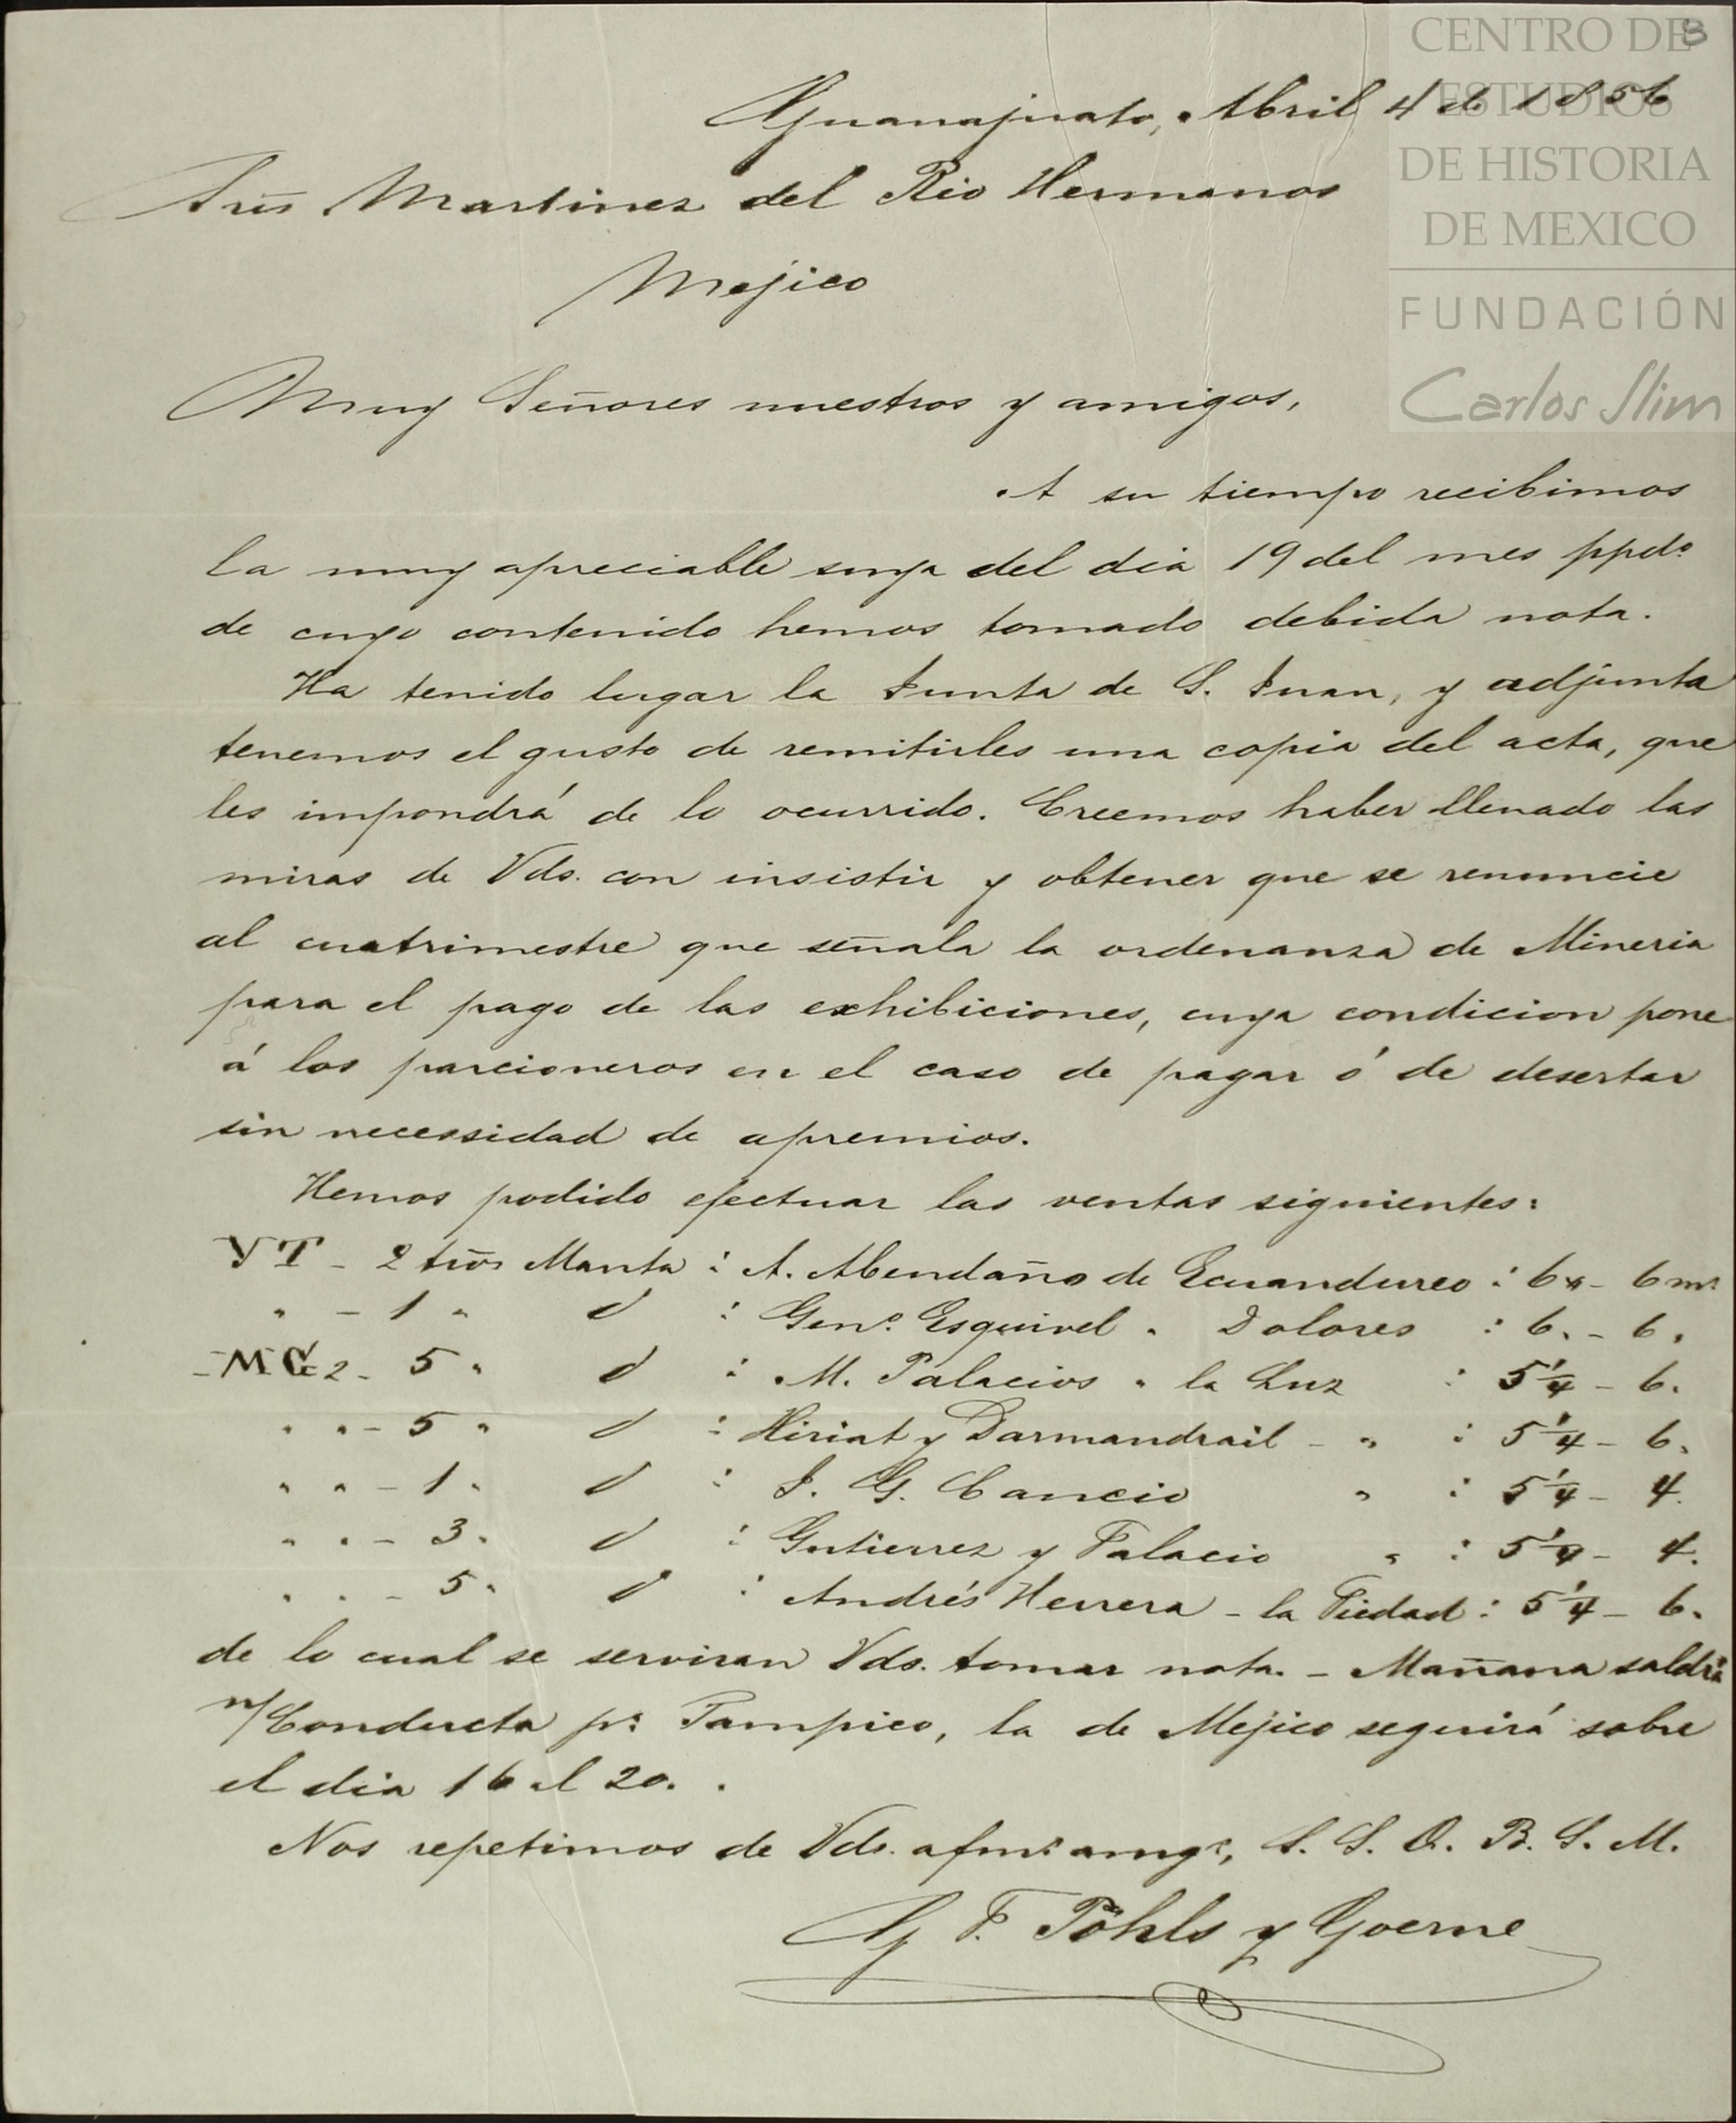 CENTRO DE
ESTUDIOS
DE HISTORIA
DE MEXICO
FUNDACIÓN
Carlos Slim
Guanajuato, Abril 4 de 1856
Sres Martinez del Rio Hermanos
Mejico
Muy Señores nuestros y amigos,
A su tiempo recibimos
la muy apreciable suya del dia 19 del mes ppdo.
de cuyo contenido hemos tomado debida nota.
Ha tenido lugar la Junta de S. Juan, y adjunta
tenemos el gusto de remitirles una copia del acta, que
les impondrá de lo ocurrido. Creemos haber llenado las
miras de Vds. con insistir y obtener que se renuncie
al cuatrimestre que señala la ordenanza de Mineria
para el pago de las exhibiciones, cuya condicion pone
á los parcioneros en el caso de pagar ó de desertar
sin necessidad de apremios.
Hemos podido efectuar las ventas siguientes:
YT - 2 tios Manta : A. Abendaño de Ecuandureo : 6 - 6 ms
" - 1 " d : Geno. Esquivel " Dolores : 6. - 6.
MG 2 - 5 " d : M. Palacios " la Luz : 5 1/4 - 6.
" " - 5 " d : Hiriat y Darmandrail - " : 5 1/4 - 6.
" " - 1 " d : J. G. Cancio " : 5 1/4 - 4.
" " - 3 " d : Gutierrez y Palacio " : 5 1/4 - 4.
" " - 5 " d : Andrés Herrera - la Piedad : 5 1/4 - 6.
de lo cual se serviran Vds. tomar nota. - Mañana saldrá
n/Conducta pa. Tampico, la de Mejico seguirá sobre
el dia 16 al 20.
Nos repetimos de Vds. afmos amgs, S. S. Q. B. S. M.
G F. Pöhls y Goerne